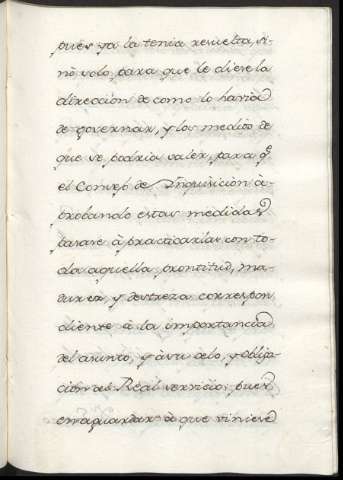 pues ya la tenia resuelta, si-
nò solo, para que le diese la
dirección de como lo havia
de governar, y los medios de
que se podria valer, para q.^e
el Consejo de Inquisicion à-
probando estas medidas
pasase à practicarlas con to-
da aquella prontitud, ma-
durez, y destreza correspon
diente à la importancia
del asunto, y à su celo, y obliga-
cion del Real servicio; pues
en aguardar à que viniese